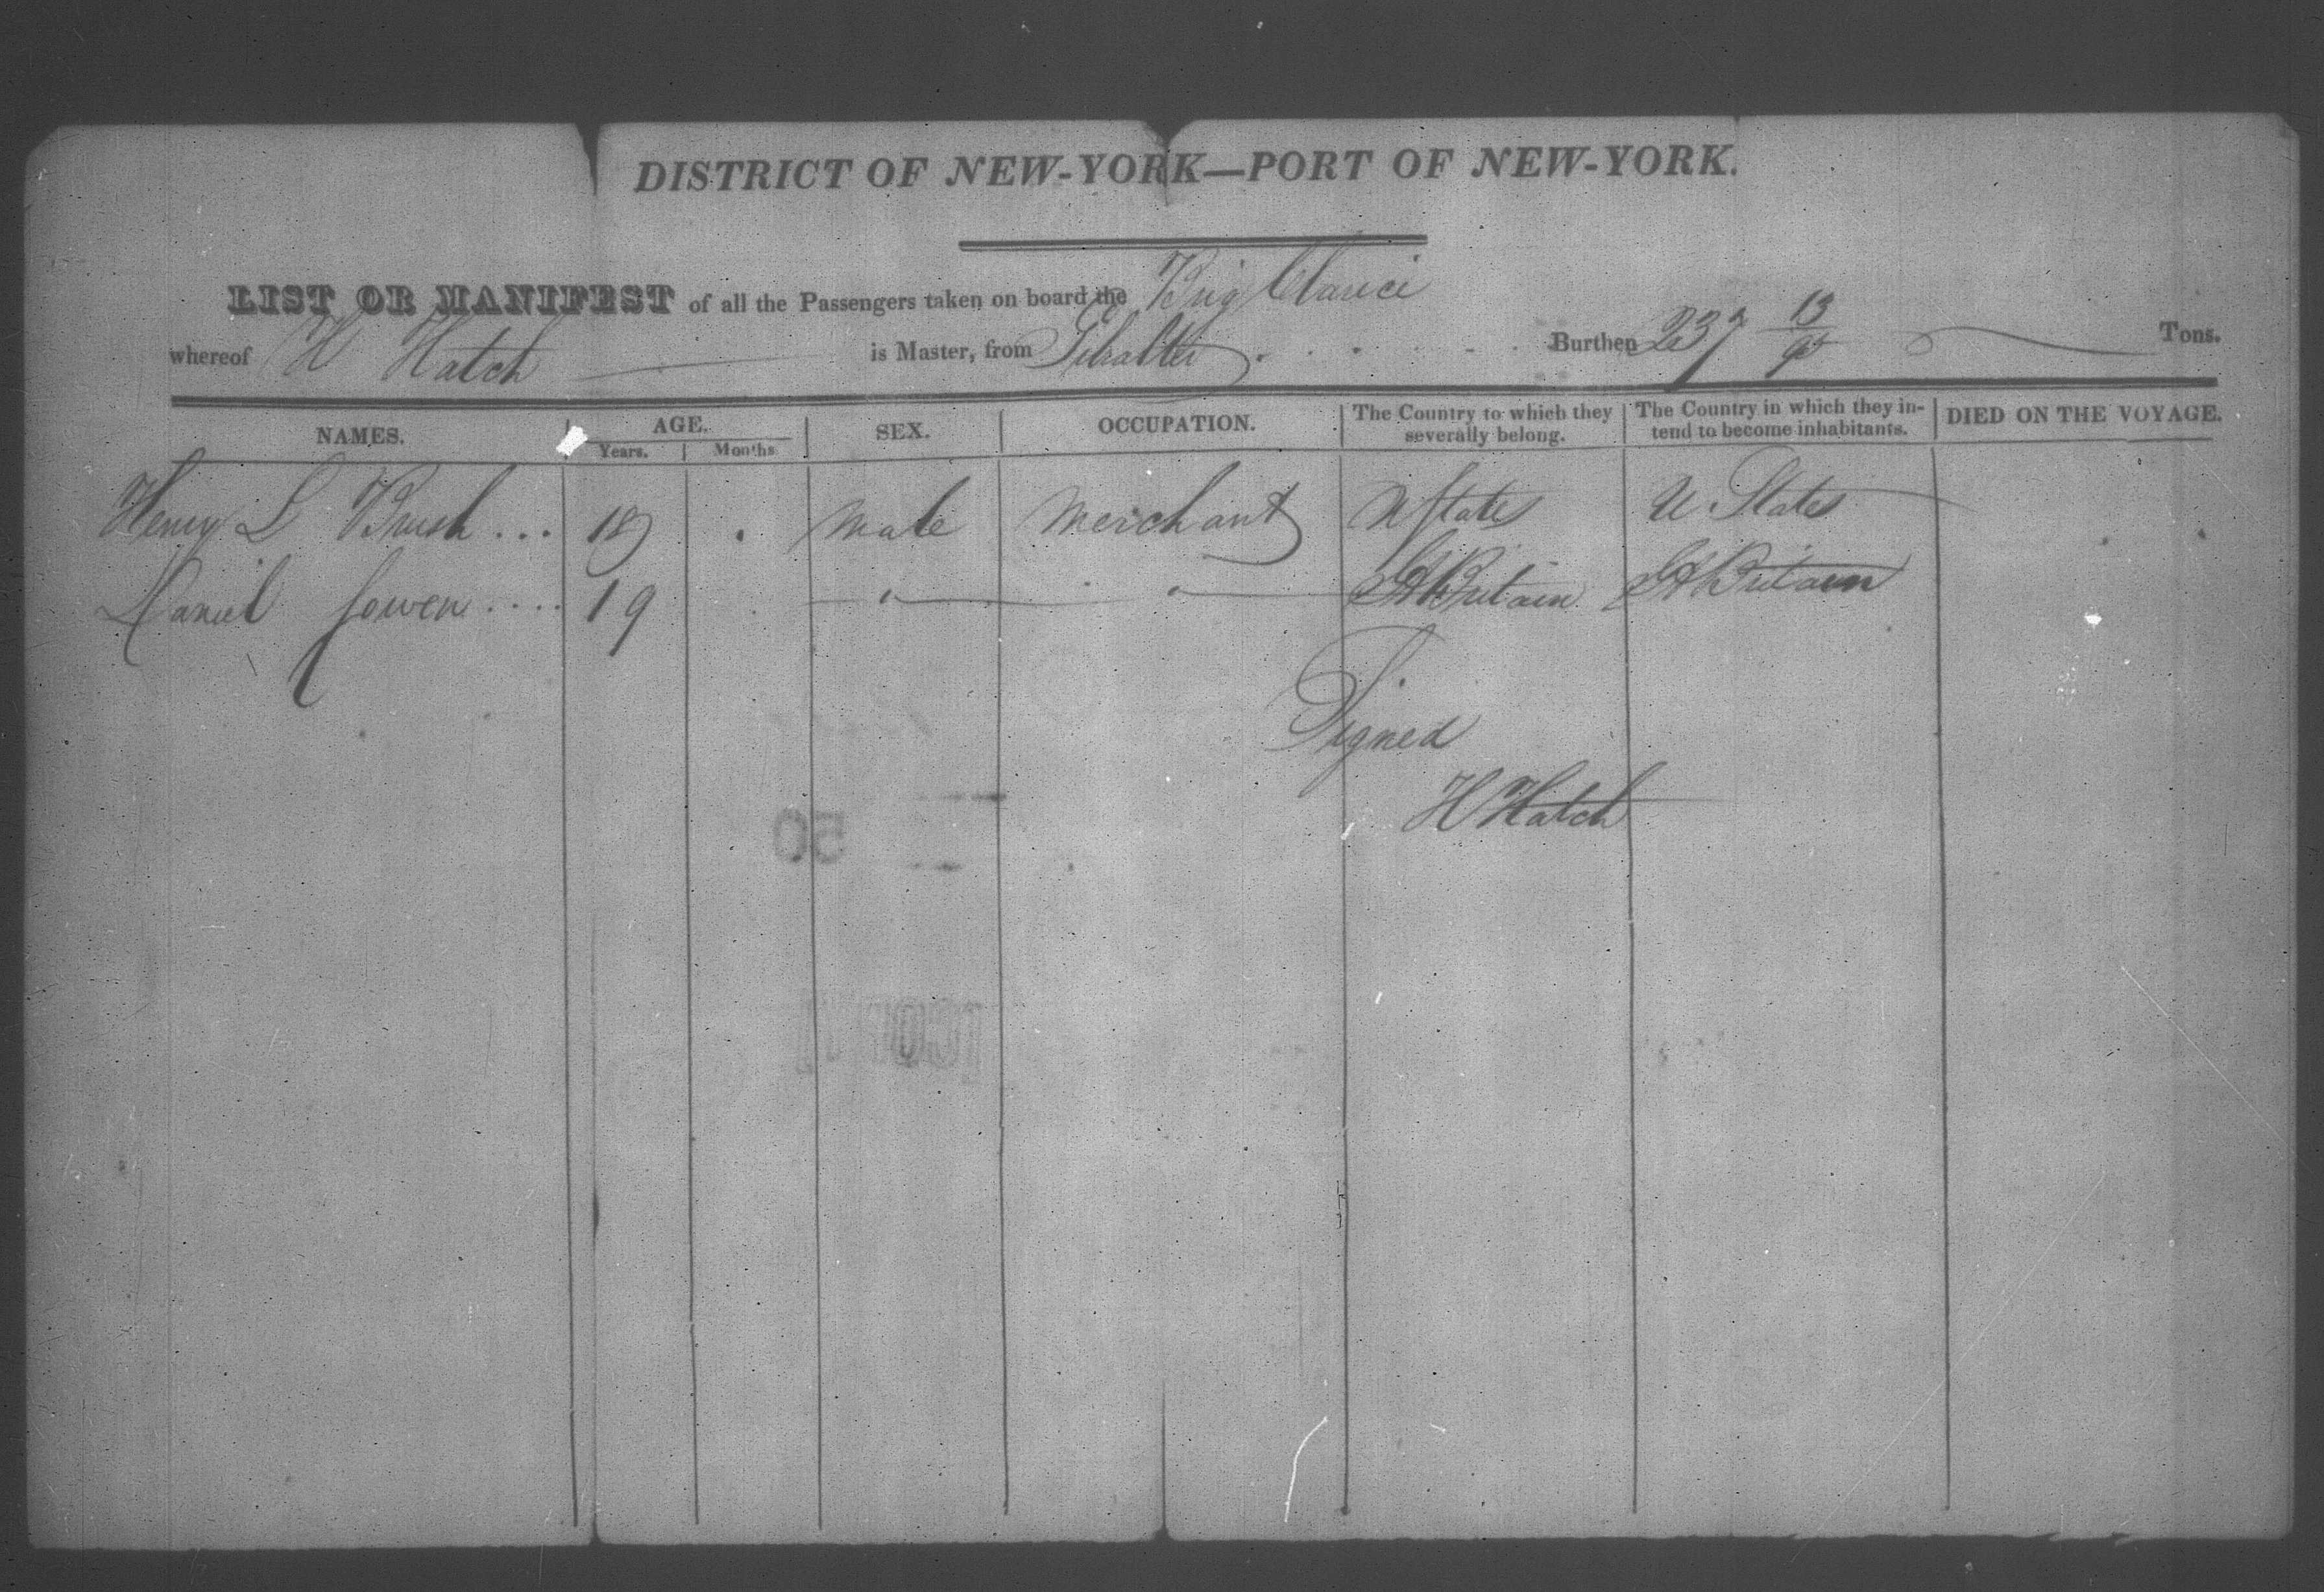 DISTRICT OF NEW-YORK—PORT OF NEW-YORK.
LIST OR MANIFEST of all the Passengers taken on board the Brig Clarice
whereof H Hatch is Master, from Gibralter Burthen 237 13/95 Tons.
NAMES. AGE. SEX. OCCUPATION. The Country to which they severally belong. The Country in which they intend to become inhabitants. DIED ON THE VOYAGE.
Years. Months
Henry L Brush ... 18 . male Merchant U States U States
Daniel Cowen .... 19 " " Gt Britain Gt Britain
Signed
H Hatch
50